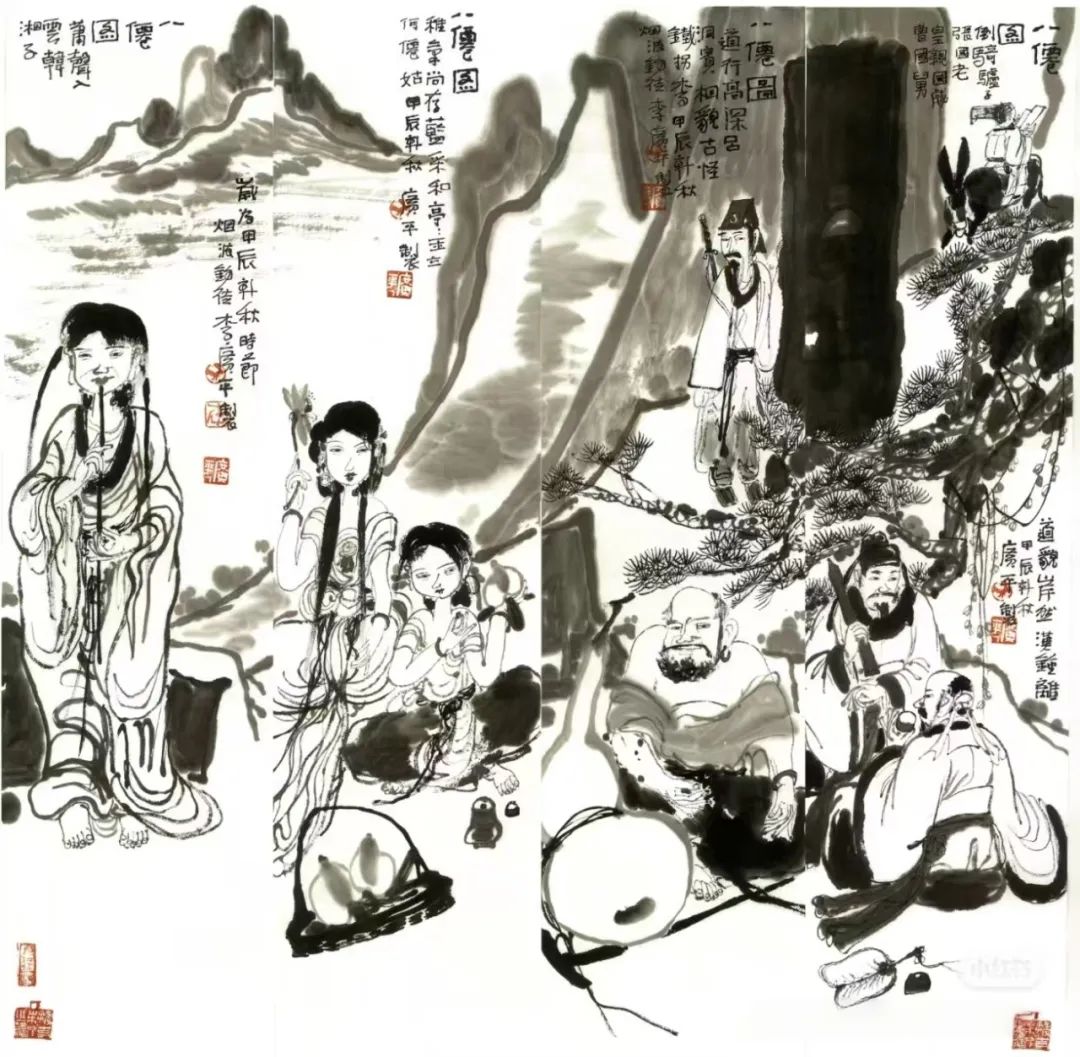 八僊
圖
倒騎驢子
張國老
皇親國戚
曹國舅
道貌岸然漢鍾離
甲辰新秋
廣平製
八僊圖
道行高深呂
洞賓相貌古怪
鐵拐李甲辰新秋
烟波釣徒李廣平製
八僊圖
稚氣尚存藍采和亭亭玉立
何僊姑甲辰新秋廣平製
八僊
圖
蕭聲入
雲韓
湘子
歲為甲辰新秋時節
烟波釣徒李廣平製
小红书